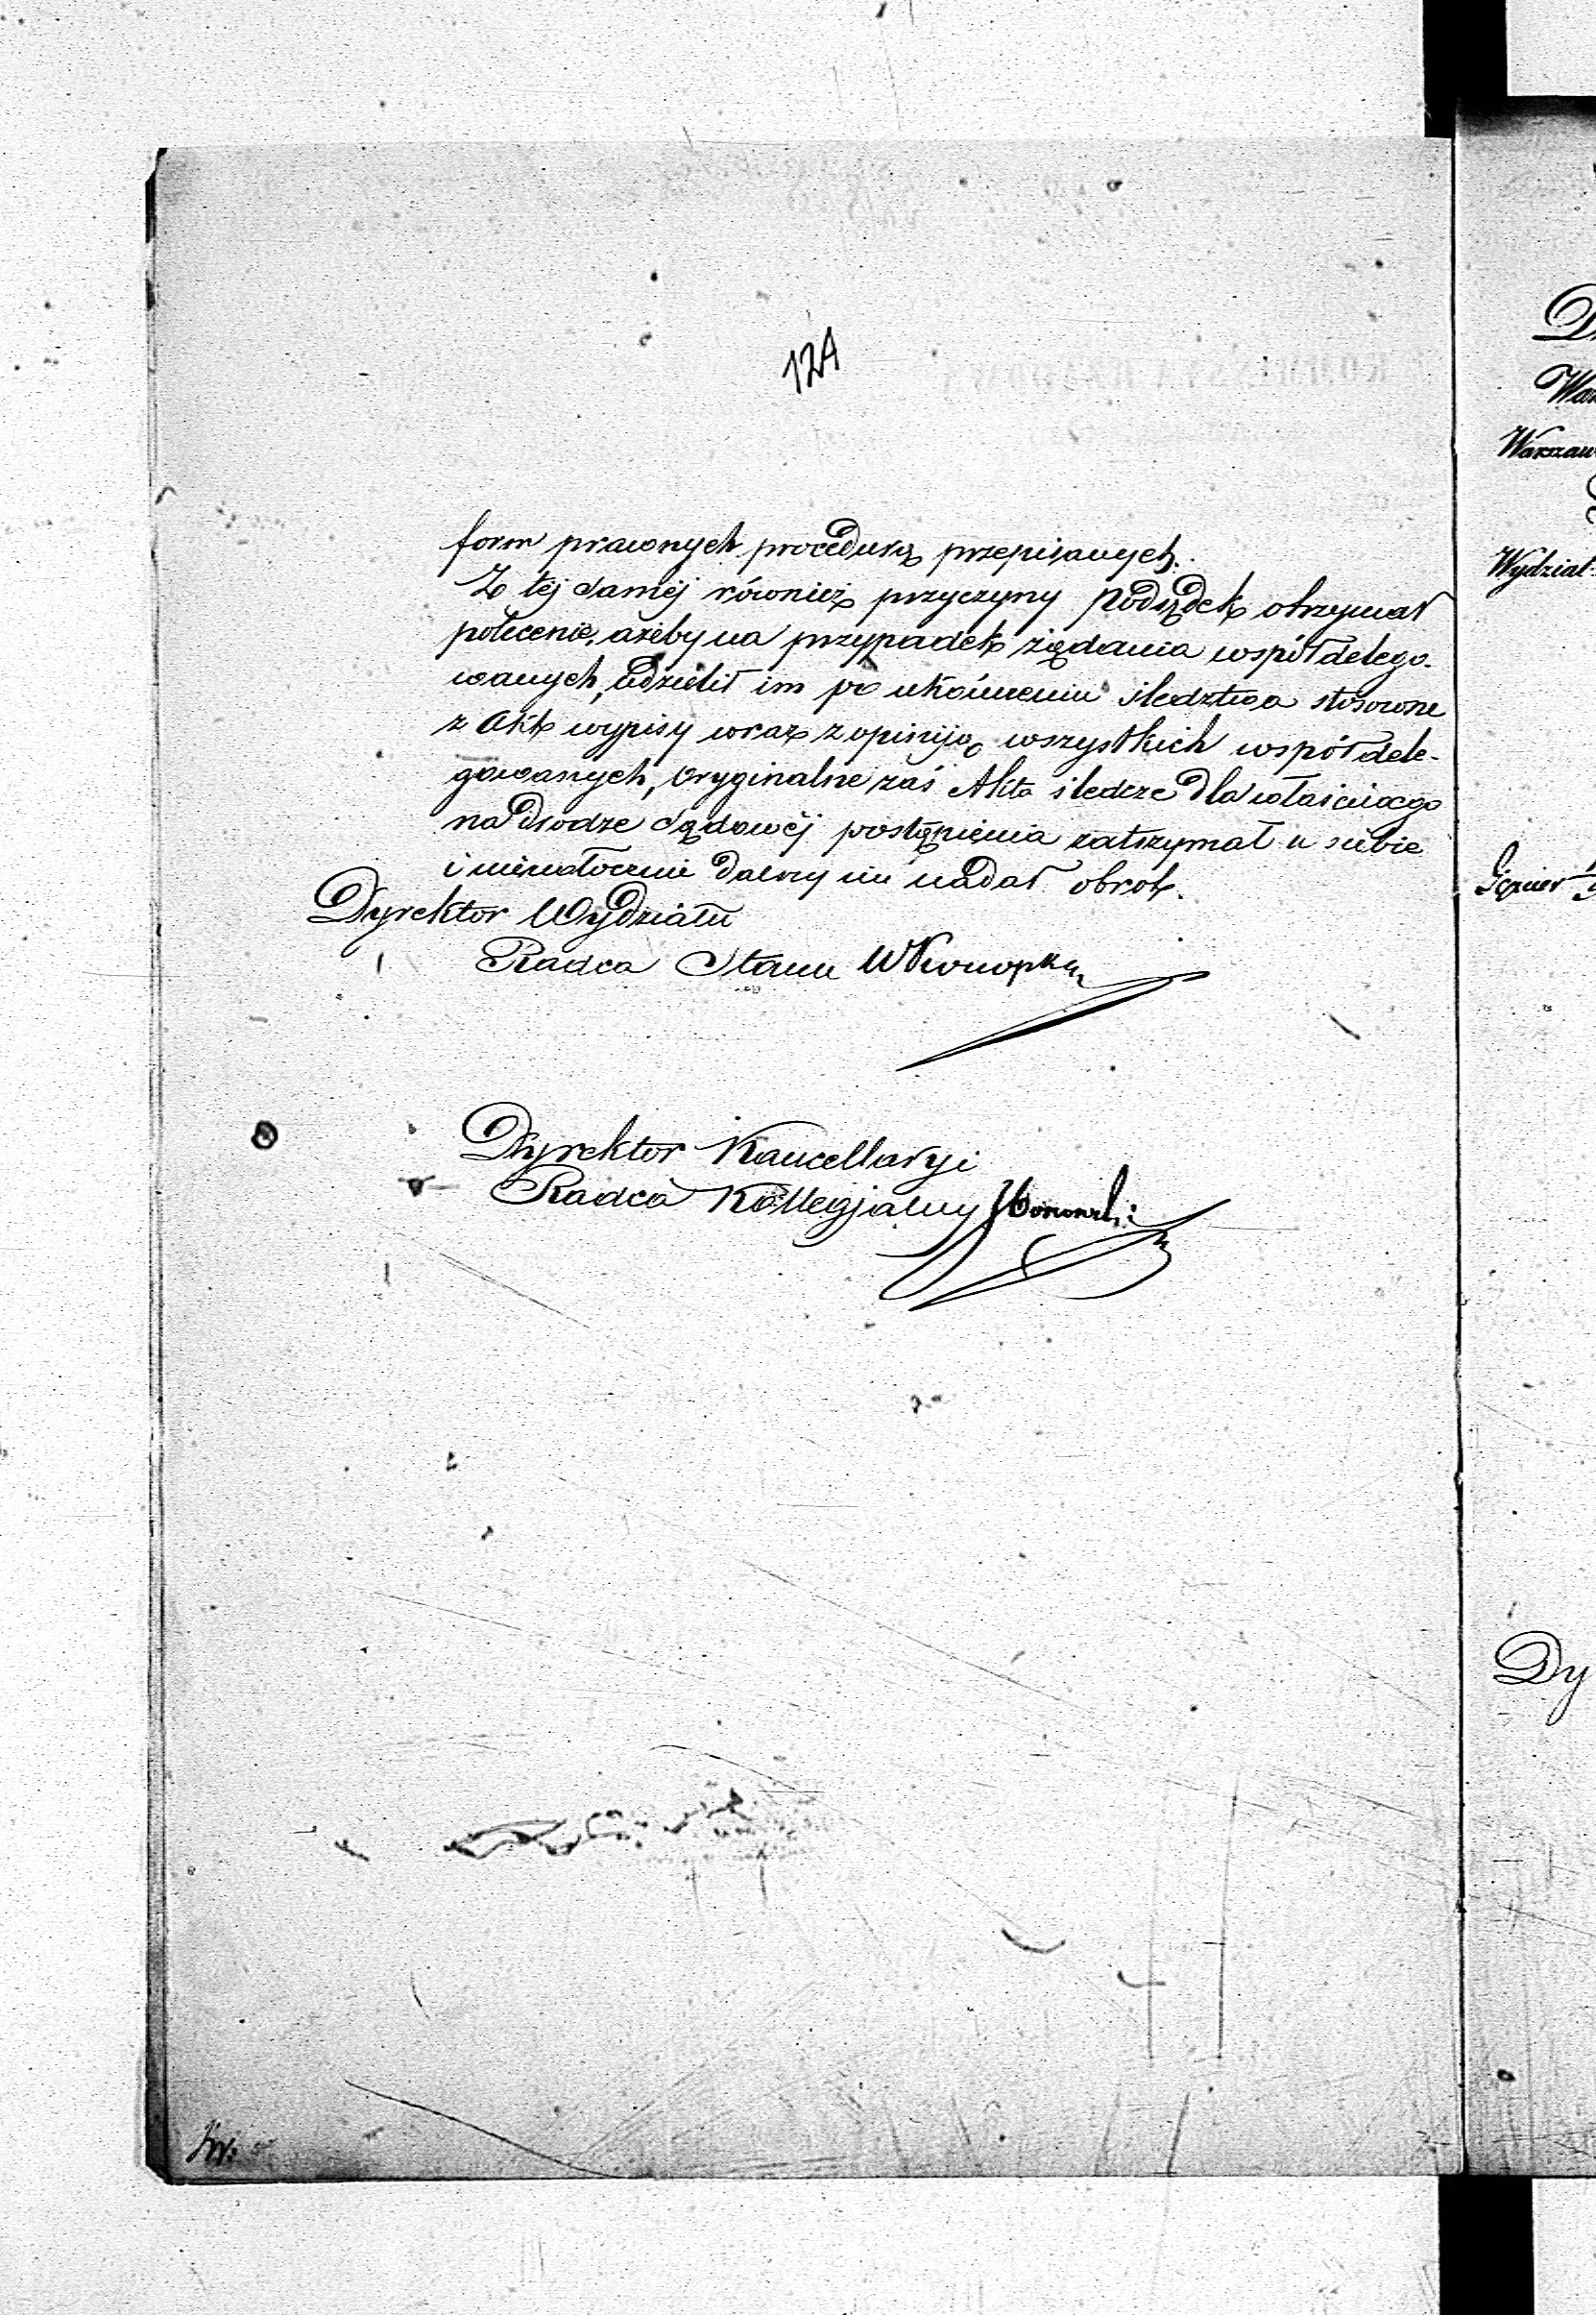 12A
form prawnych procedurą przepisanych.
Z téj saméj również przyczyny Podsędek otrzymał
polecenie, ażeby na przypadek żądania współdelego-
wanych, udzielił im po ukończeniu śledztwa stosowne
z Akt wypisy wraz z opiniją wszystkich współdele-
gowanych, oryginalne zaś Akta śledcze dla właściwego
na drodze sądowéj postąpienia zatrzymał u siebie
i niezwłocznie dalszy im nadał obrot.
Dyrektor Wydziału
Radca Stanu WKonopka
Dyrektor Kancellaryi
Radca Kollegjalny
Wydział